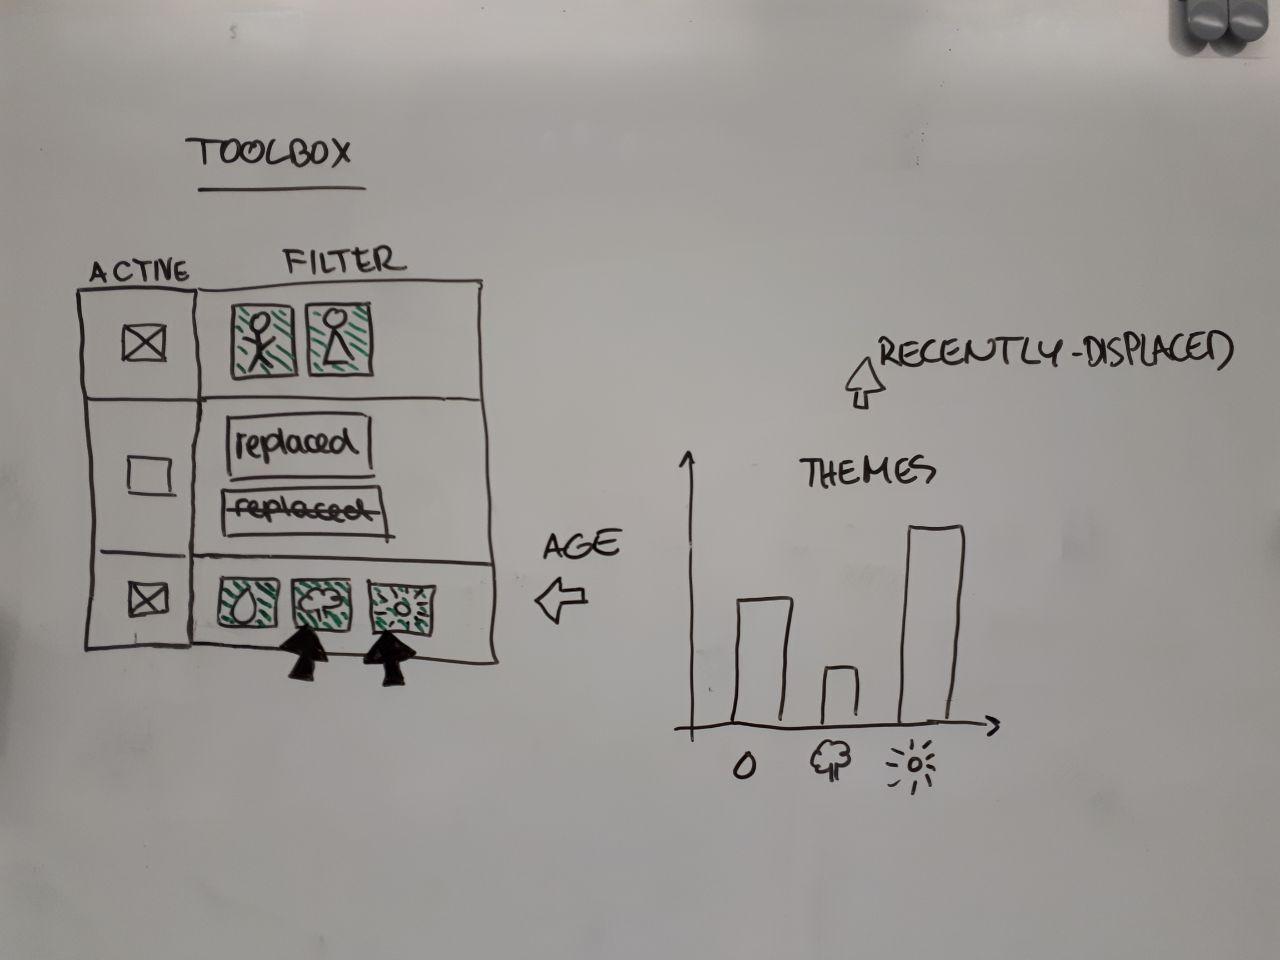 TOOLBOX
ACTIVE
FILTER
replaced
replaced
AGE
RECENTLY-DISPLACED
THEMES